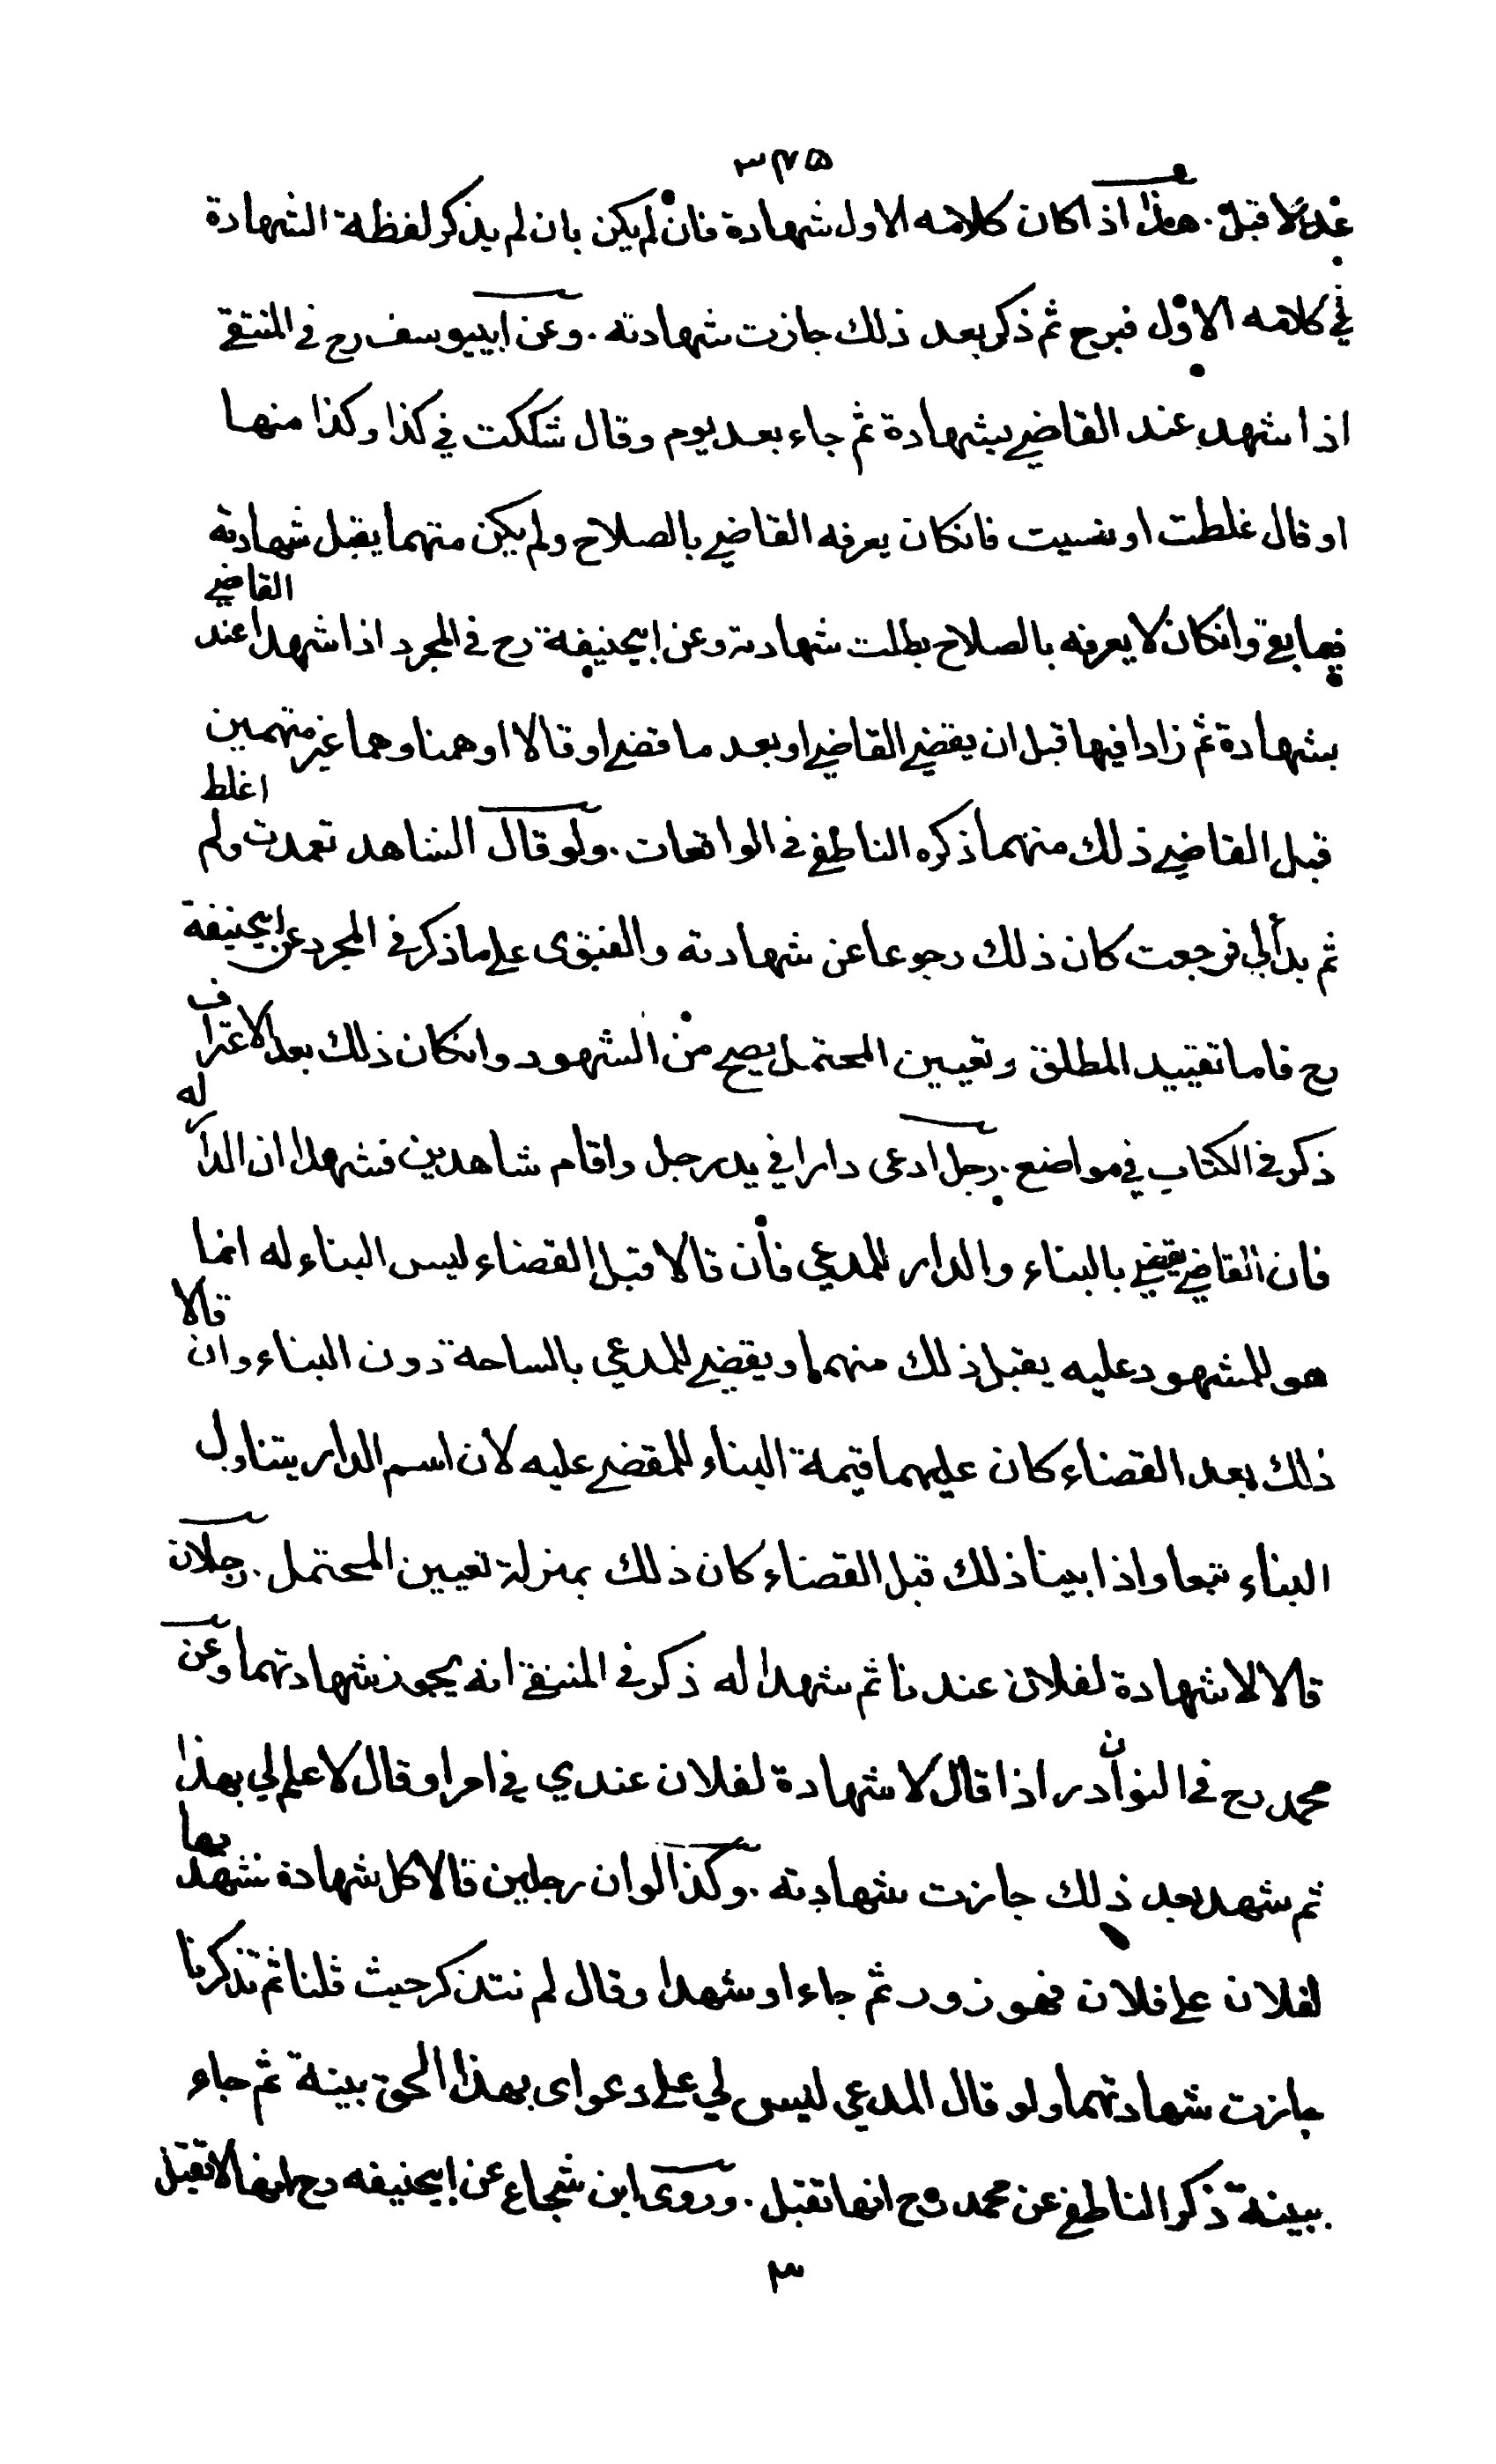 ٣٢٥
غده لا قبل . هذا اذا كان كلامه الاول شهادة فان لم يكن بان لم يذكر لفظة الشهادة
في كلامه الاول فبرح ثم ذكر بعد ذلك جازت شهادته . وعن ابييوسف رح في المنتقى
اذا شهد عند القاضي بشهادة ثم جاء بعد يوم وقال شككت في كذا وكذا منها
او قال غلطت او نسيت فانكان يعرفه القاضي بالصلاح ولم يكن متهما يقبل شهادته
فيما بقي وانكان لا يعرفه بالصلاح بطلت شهادته وعن ابيحنيفة رح في المجرد اذا شهدا عند القاضي
بشهادة ثم زادا فيها قبل ان يقضي القاضي او بعد ما قضى او قالا اوهمنا وهما غير متهمين
قبل القاضي ذلك منهما ذكره الناطفي في الواقعات . ولو قال الشاهد تعمدت ولم اغلط
ثم بدألي فرجعت كان ذلك رجوعا عن شهادته والفتوى على ما ذكر في المجرد عن ابيحنيفة
رح فاما تقييد المطلق وتعيين المحتمل يصح من الشهود وانكان ذلك بعد الاعتراف
ذكر في الكتاب في مواضع . رجل ادعى دارا في يد رجل واقام شاهدين فشهدا ان الدار له
فان القاضي يقضي بالبناء والدار للمدعي فأن قالا قبل القضاء ليس البناء له انما
هو للمشهود عليه يقبل ذلك منهما ويقضي للمدعي بالساحة دون البناء وان قالا
ذلك بعد القضاء كان عليهما قيمة البناء للمقضي عليه لأن اسم الدار يتناول
البناء تبعا واذا بينا ذلك قبل القضاء كان ذلك بمنزلة تعيين المحتمل . رجلان
قالا لا شهادة لفلان عندنا ثم شهدا له ذكر في المنتقى انه يجوز شهادتهما وعن
محمد رح في النوادر اذا قال لا شهادة لفلان عندي في امر او قال لا علم لي بهذا
ثم شهد بعد ذلك جازت شهادته . وكذا لوان رجلين قالا كل شهادة نشهد بها
لفلان على فلان فهو زور ثم جاءا وشهدا وقال لم نتذكر حيث قلنا ثم تذكرنا
جازت شهادتهما ولو قال المدعي ليس لي على دعواى بهذا الحق بينة ثم جاء
ببينة ذكر الناطفي عن محمد رح انها تقبل . وروى ابن شجاع عن ابيحنيفه رح انها لا تقبل
٣